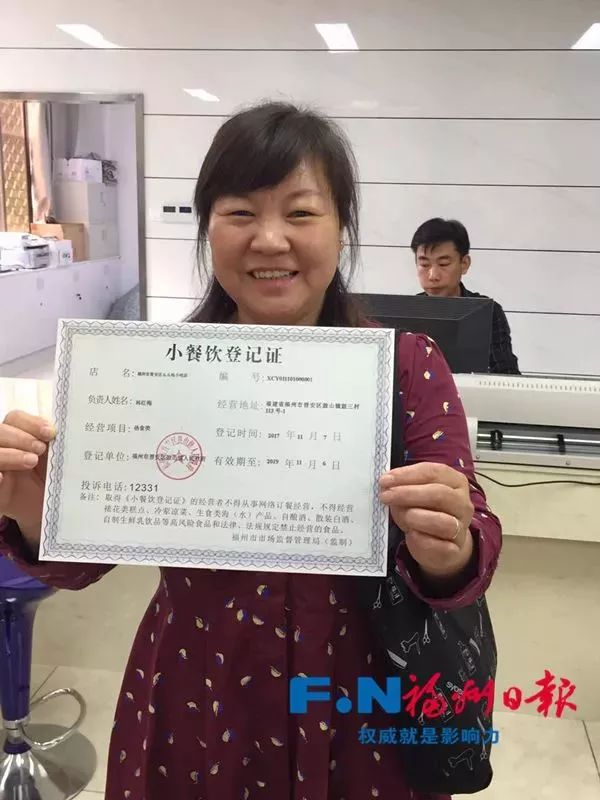 小餐饮登记证
店 名: 编 号: XCY0111010000001
负责人姓名: 经营地址: 福建省福州市晋安区鼓山镇鼓三村
113号-1
经营项目: 热食类 登记时间: 2017 年 11 月 7 日
登记单位: 有效期至: 2019 年 11 月 6 日
投诉电话: 12331
备注: 取得《小餐饮登记证》的经营者不得从事网络订餐经营, 不得经营
裱花类糕点、冷家凉菜、生食类海(水)产品、自酿酒、散装白酒、
自制生鲜乳饮品等高风险食品和法律、法规规定禁止经营的食品。
福州市市场监督管理局(监制)
F.N 福州日报
权威就是影响力